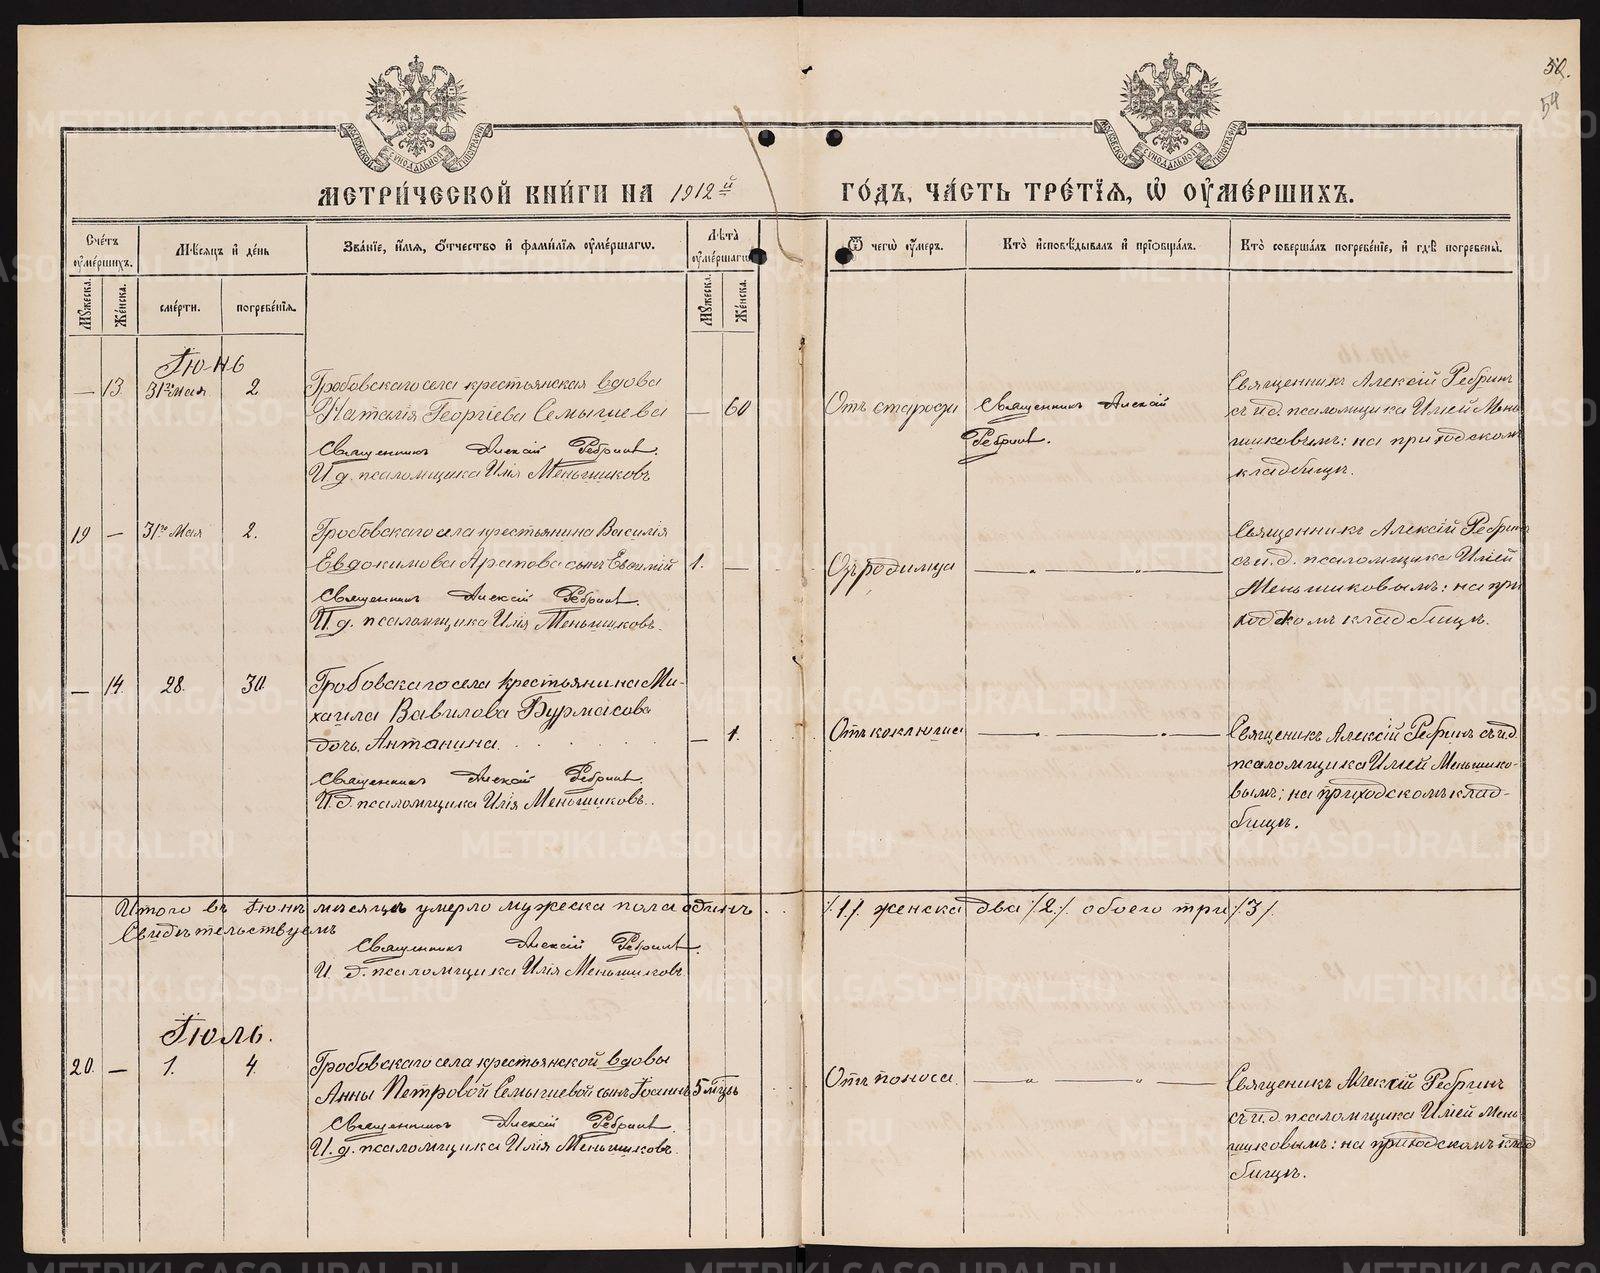 50.
54
МОСКОВСКОЙ СѴНОДАЛЬНОЙ ТИПОГРАФІИ
МОСКОВСКОЙ СѴНОДАЛЬНОЙ ТИПОГРАФІИ
МЕТРИ́ЧЕСКОЙ КНИ́ГИ НА 1912й
ГО́ДЪ, ЧА́СТЬ ТРЕ́ТЇѦ, Ѡ҆ ОУ҆МЕ́РШИХЪ.
Сче́тъ оу҆ме́ршихъ.
Мѣ́сѧцъ и҆ де́нь
Зва́нїе, и҆́мѧ, ѻ҆́тчество и҆ фами́лїѧ оу҆ме́ршагѡ.
Лѣ́та оу҆ме́ршагѡ
Ѿ чегѡ̀ оу҆́меръ.
Кто̀ и҆сповѣ́дывалъ и҆ прїѻбща́лъ.
Кто̀ соверша́лъ погребе́нїе, и҆ гдѣ̀ погребены̀.
Мꙋ́жеска.
Же́нска.
сме́рти.
погребе́нїѧ.
Мꙋ́жеска.
Же́нска.
Іюнь
— 13 31го Мая 2
Гробовскаго села крестьянская вдова
Наталія Георгіева Семышева — 60
Священникъ Алексій Ребринъ.
И. д. псаломщика Илія Меньшиковъ
Отъ старости
Священникъ Алексій
Ребринъ.
Священникъ Алексій Ребринъ
съ и.д. псаломщика Иліей Мень
шиковымъ: на приходскомъ
кладбищѣ.
19 — 31го Мая 2.
Гробовскаго села крестьянина Василія
Евдокимова Арапова сынъ Евѳимій 1. —
Священникъ Алексій Ребринъ.
И. д. псаломщика Илія Меньшиковъ.
Отъ родимца
— „ — „ —
Священникъ Алексій Ребринъ
съ и.д. псаломщика Иліей
Меньшиковымъ: на при
ходскомъ кладбищѣ.
— 14. 28. 30.
Гробовскаго села крестьянина Ми-
хаила Вавилова Бурмасова
дочь Антанина. — 1.
Священникъ Алексій Ребринъ.
И. д. псаломщика Илія Меньшиковъ.
Отъ коклюша
— „ — „ —
Священикъ Алексій Ребринъ съ и.д.
псаломщика Иліей Меньшико-
вымъ; на приходскомъ клад-
бищѣ.
Итого въ Іюнѣ мѣсяцѣ умерло мужеска пола одинъ /.1./. женска два /.2./. обоего три /.3./.
Свидѣтельствуемъ
Священникъ Алексій Ребринъ.
И. д. псаломщика Илія Меньшиковъ
Іюль.
20. — 1. 4.
Гробовскаго села крестьянской вдовы
Анны Петровой Семышевой сынъ Іоаннъ 5 мцъ
Священникъ Алексій Ребринъ.
И. д. псаломщика Илія Меньшиковъ.
Отъ поноса.
— „ — „ —
Священикъ Алексій Ребринъ
съ и.д. псаломщика Иліей Мень
шиковымъ: на приходскомъ клад
бищѣ.
METRIKI.GASO-URAL.RU